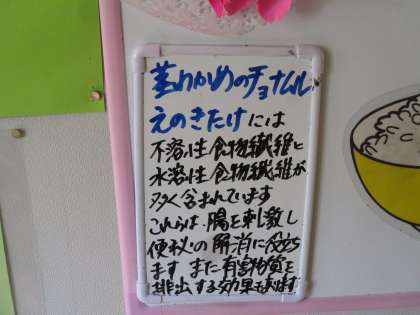 茎わかめのチョナムル
えのきたけには
不溶性食物繊維と
水溶性食物繊維が
多く含まれています
これらは、腸を刺激し
便秘の解消に役立ち
ます また有害物質を
排出する効果もあります